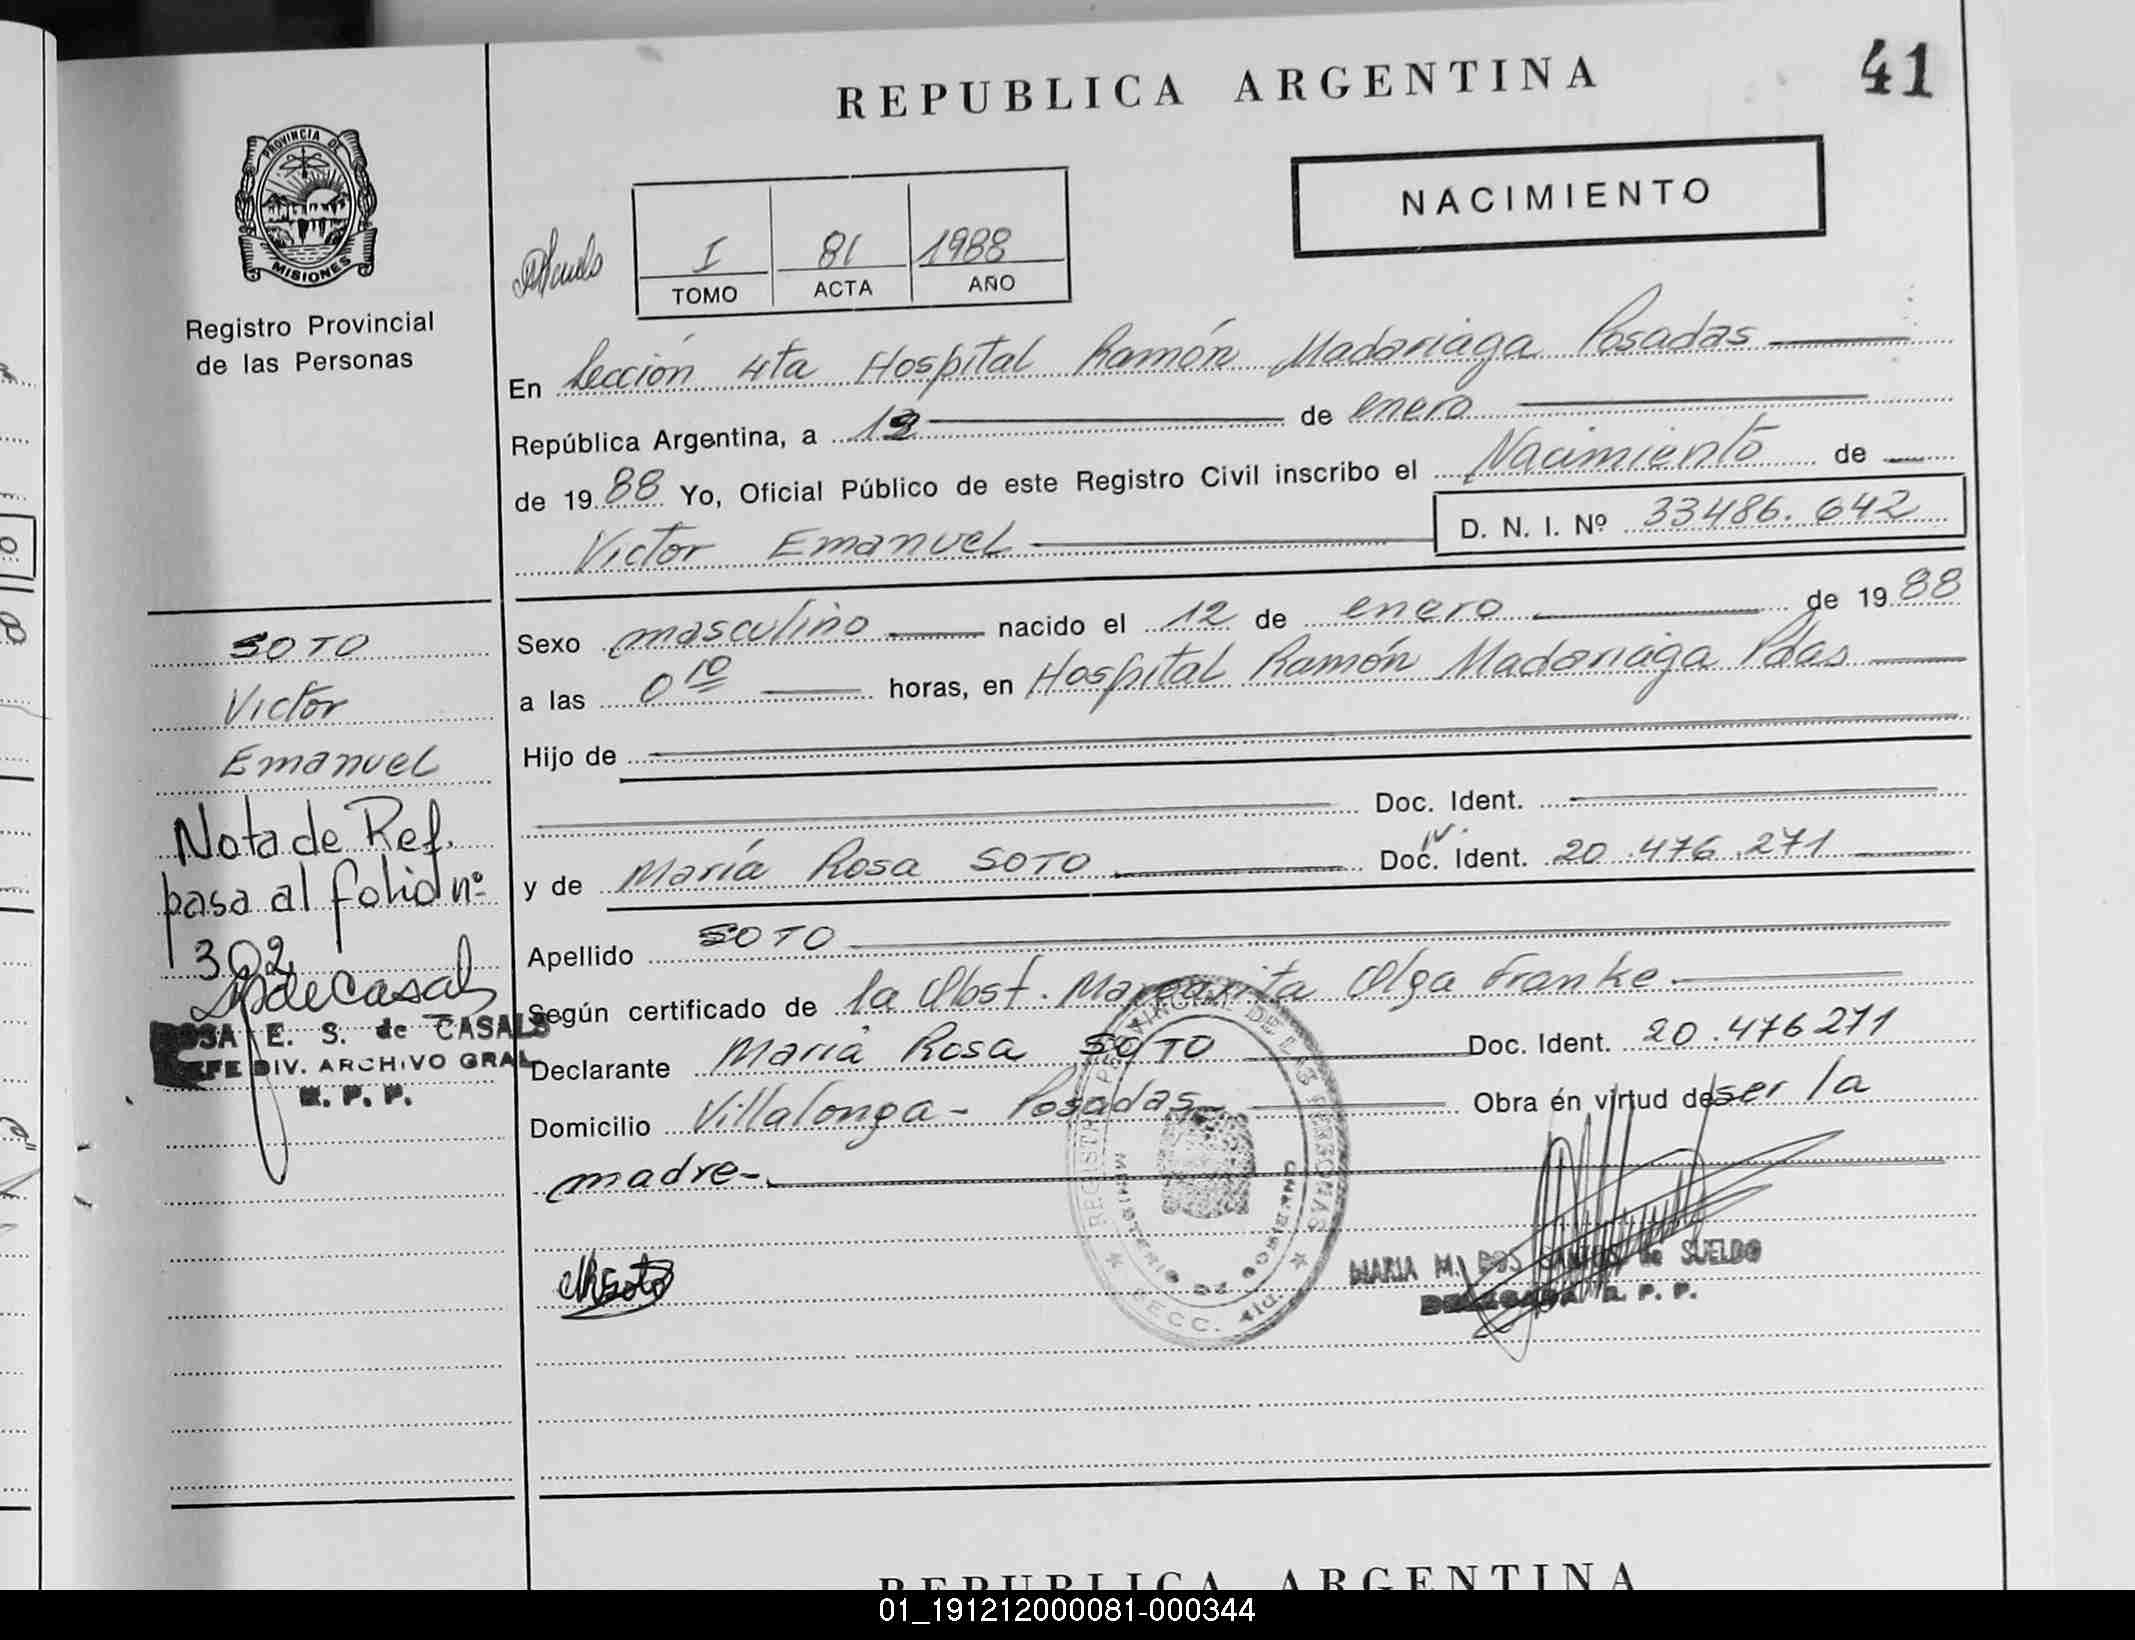 REPUBLICA ARGENTINA
41
PROVINCIA DE
MISIONES
Registro Provincial
de las Personas
NACIMIENTO
I 81 1988
TOMO ACTA AÑO
En Sección 4ta Hospital Ramón Madariaga Posadas
República Argentina, a de enero
de 1988 Yo, Oficial Público de este Registro Civil inscribo el Nacimiento de
Victor Emanuel
D. N. I. Nº 33486.642
Sexo masculino nacido el 12 de enero de 1988
a las 0 10 horas, en Hospital Ramón Madariaga Pdas
Hijo de
Doc. Ident.
y de María Rosa SOTO Doc. Ident. 20.476.271
Apellido SOTO
Según certificado de la Obst. Margarita Olga Franke
Declarante María Rosa SOTO Doc. Ident. 20.476271
Domicilio Villalonga - Posadas Obra en virtud de ser la
madre-
SOTO
Victor
Emanuel
Nota de Ref.
pasa al folio nº
302
SpdeCasals
ROSA E. S. de CASALS
JEFE DIV. ARCHIVO GRAL
R. P. P.
MRSoto
REGISTRO PROVINCIAL DE LAS PERSONAS
MINISTERIO DE GOBIERNO
SECC. 4ta.
MARIA M. DOS SANTOS de SUELDO
DELEGADA R. P. P.
REPUBLICA ARGENTINA
01_191212000081-000344